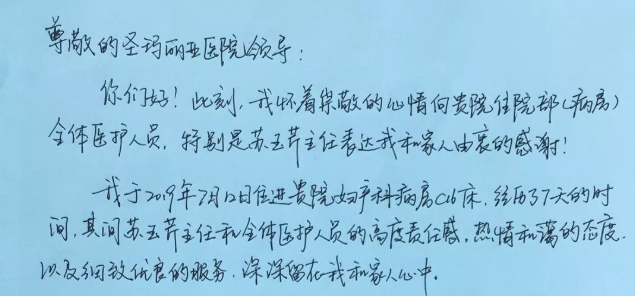 尊敬的圣玛丽亚医院领导:
你们好!此刻,我怀着崇敬的心情向贵院住院部(病房)
全体医护人员,特别是苏玉芹主任表达我和家人由衷的感谢!
我于2019年7月12日住进贵院妇产科病房C16床,经历了7天的时
间,其间苏玉芹主任和全体医护人员的高度责任感,热情和蔼的态度.
以及细致优良的服务.深深留在我和家人心中。